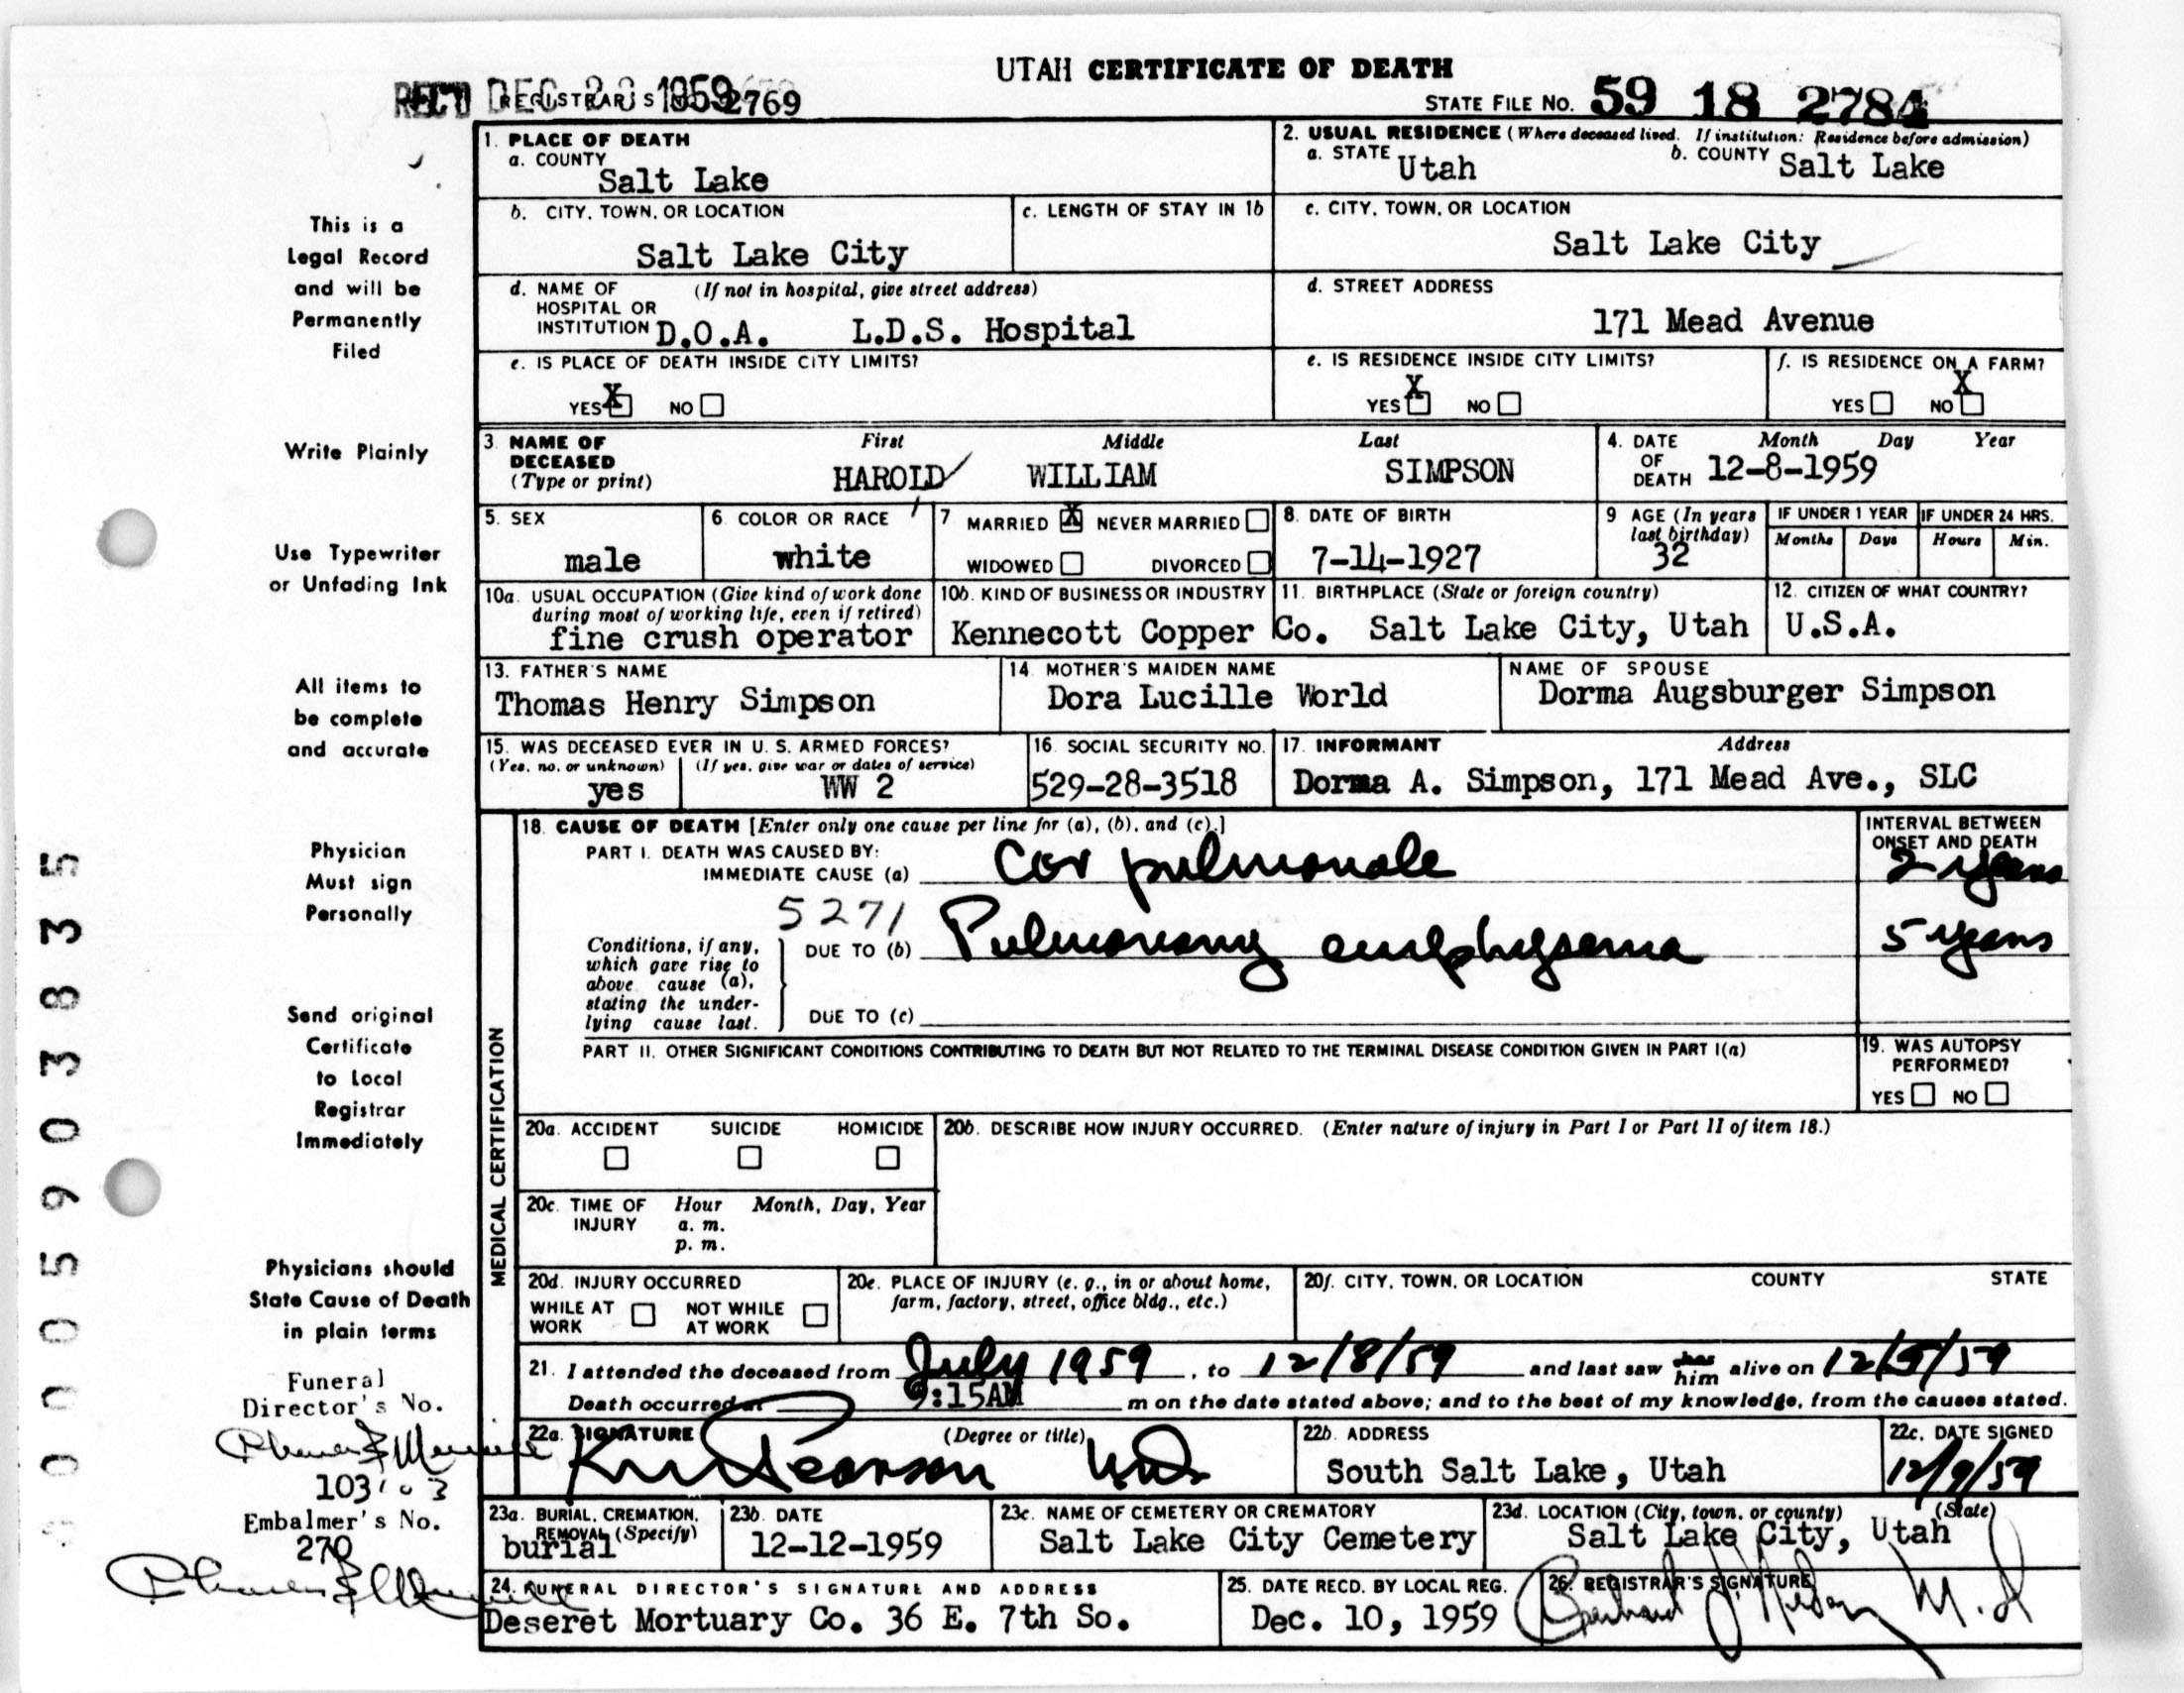 UTAH CERTIFICATE OF DEATH
REC'D DEC 1959
REGISTRAR'S 2769
STATE FILE NO. 59 18 2784
1. PLACE OF DEATH
a. COUNTY
Salt Lake
2. USUAL RESIDENCE (Where deceased lived. If institution: Residence before admission)
a. STATE Utah b. COUNTY Salt Lake
b. CITY, TOWN, OR LOCATION
Salt Lake City
c. LENGTH OF STAY IN 1b
c. CITY, TOWN, OR LOCATION
Salt Lake City
d. NAME OF (If not in hospital, give street address)
HOSPITAL OR
INSTITUTION D.O.A. L.D.S. Hospital
d. STREET ADDRESS
171 Mead Avenue
e. IS PLACE OF DEATH INSIDE CITY LIMITS?
YES X NO
e. IS RESIDENCE INSIDE CITY LIMITS?
YES X NO
f. IS RESIDENCE ON A FARM?
YES NO X
3. NAME OF DECEASED (Type or print)
First Middle Last
HAROLD WILLIAM SIMPSON
4. DATE OF DEATH Month Day Year
12-8-1959
5. SEX
male
6. COLOR OR RACE
white
7 MARRIED X NEVER MARRIED
WIDOWED DIVORCED
8. DATE OF BIRTH
7-14-1927
9 AGE (In years last birthday)
32
IF UNDER 1 YEAR
Months Days
IF UNDER 24 HRS.
Hours Min.
10a. USUAL OCCUPATION (Give kind of work done
during most of working life, even if retired)
fine crush operator
10b. KIND OF BUSINESS OR INDUSTRY
Kennecott Copper Co.
11. BIRTHPLACE (State or foreign country)
Salt Lake City, Utah
12. CITIZEN OF WHAT COUNTRY?
U.S.A.
13. FATHER'S NAME
Thomas Henry Simpson
14. MOTHER'S MAIDEN NAME
Dora Lucille World
NAME OF SPOUSE
Dorma Augsburger Simpson
15. WAS DECEASED EVER IN U. S. ARMED FORCES?
(Yes, no, or unknown) (If yes, give war or dates of service)
yes WW 2
16. SOCIAL SECURITY NO.
529-28-3518
17. INFORMANT Address
Dorma A. Simpson, 171 Mead Ave., SLC
MEDICAL CERTIFICATION
18. CAUSE OF DEATH [Enter only one cause per line for (a), (b), and (c).]
PART I. DEATH WAS CAUSED BY:
IMMEDIATE CAUSE (a) Cor pulmonale
INTERVAL BETWEEN
ONSET AND DEATH
2 years
5271
Conditions, if any,
which gave rise to
above cause (a),
stating the under-
lying cause last.
DUE TO (b) Pulmonary emphysema
5 years
DUE TO (c)
PART II. OTHER SIGNIFICANT CONDITIONS CONTRIBUTING TO DEATH BUT NOT RELATED TO THE TERMINAL DISEASE CONDITION GIVEN IN PART I(a)
19. WAS AUTOPSY
PERFORMED?
YES NO
20a. ACCIDENT SUICIDE HOMICIDE
20b. DESCRIBE HOW INJURY OCCURRED. (Enter nature of injury in Part I or Part II of item 18.)
20c. TIME OF INJURY Hour Month, Day, Year
a. m.
p. m.
20d. INJURY OCCURRED
WHILE AT WORK NOT WHILE AT WORK
20e. PLACE OF INJURY (e. g., in or about home,
farm, factory, street, office bldg., etc.)
20f. CITY, TOWN, OR LOCATION COUNTY STATE
21. I attended the deceased from July 1959, to 12/8/59 and last saw her him alive on
Death occurred at 9:15AM m on the date stated above; and to the best of my knowledge, from the causes stated.
22a. SIGNATURE (Degree or title)
Pearson
22b. ADDRESS
South Salt Lake, Utah
22c. DATE SIGNED
12/9/59
23a. BURIAL, CREMATION,
REMOVAL (Specify)
burial
23b. DATE
12-12-1959
23c. NAME OF CEMETERY OR CREMATORY
Salt Lake City Cemetery
23d. LOCATION (City, town, or county) (State)
Salt Lake City, Utah
24. FUNERAL DIRECTOR'S SIGNATURE AND ADDRESS
Deseret Mortuary Co. 36 E. 7th So.
25. DATE RECD. BY LOCAL REG.
Dec. 10, 1959
26. REGISTRAR'S SIGNATURE
M.D
This is a
Legal Record
and will be
Permanently
Filed
Write Plainly
Use Typewriter
or Unfading Ink
All items to
be complete
and accurate
Physician
Must sign
Personally
Send original
Certificate
to Local
Registrar
Immediately
Physicians should
State Cause of Death
in plain terms
Funeral
Director's No.
103
Embalmer's No.
270
005903835